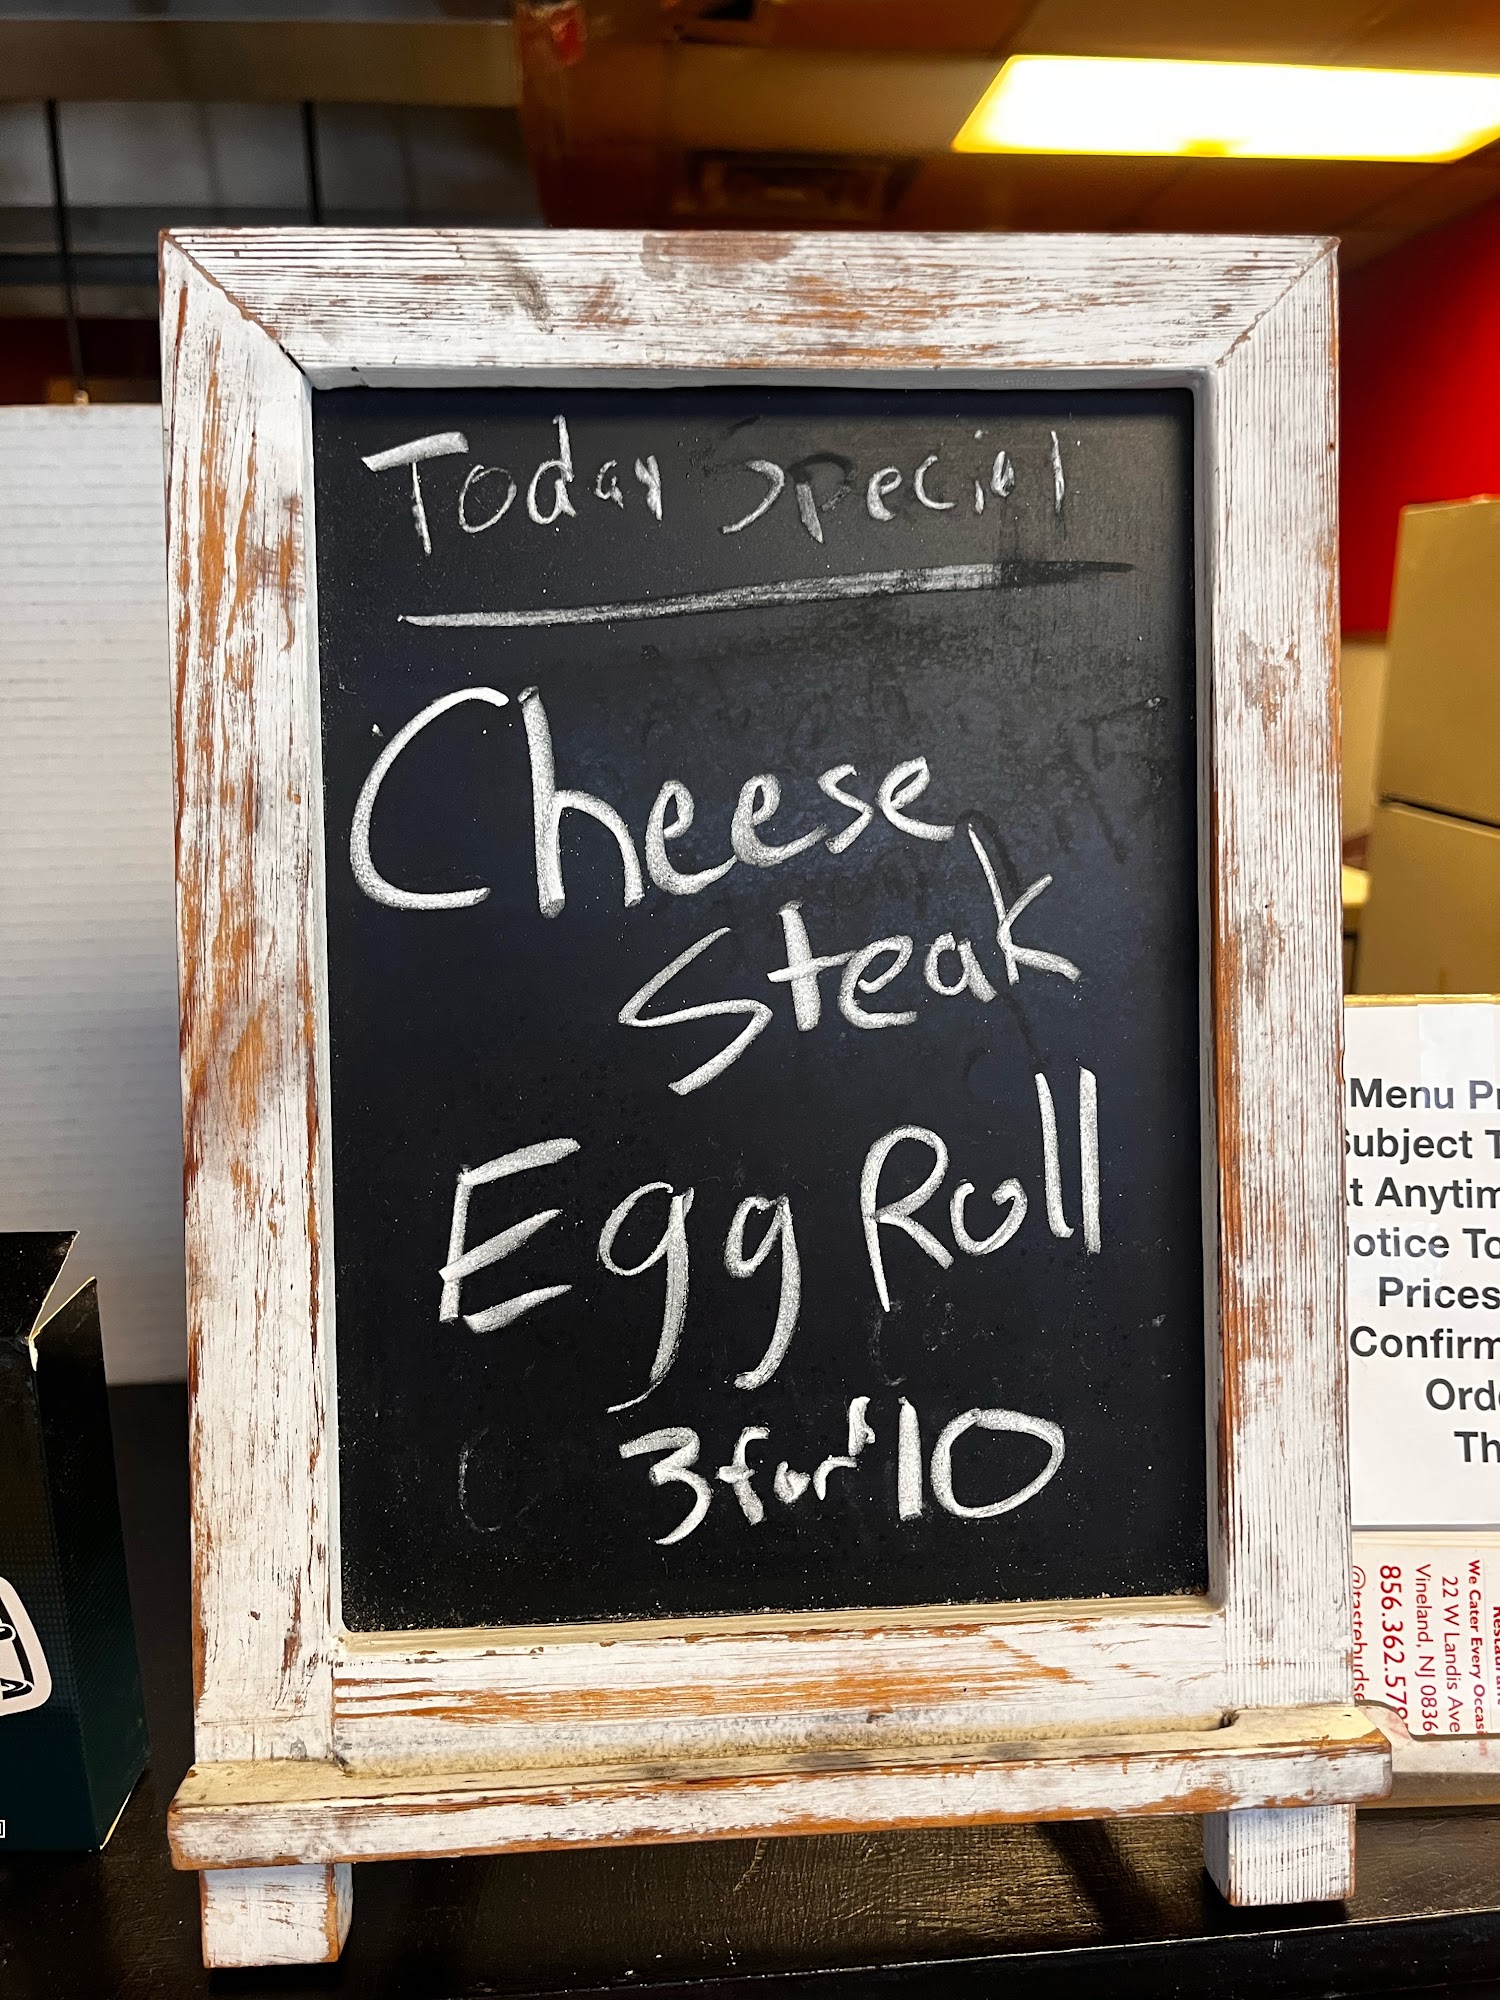 Today Special
Cheese
Steak
Egg Roll
3 for $10
Menu
Subject
Anytim
Notice To
Prices
Confirm
Ord
Th
We Cater Every Occasion
22 W Landis Ave
Vineland, NJ 0836
856.362.579
@tastebudse